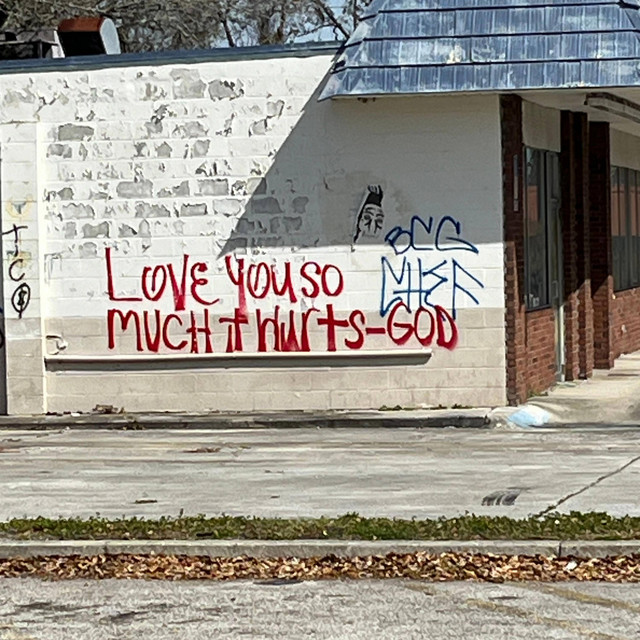 LOVE YOU SO
MUCH IT HURTS-GOD
BCG
CHEF
TC